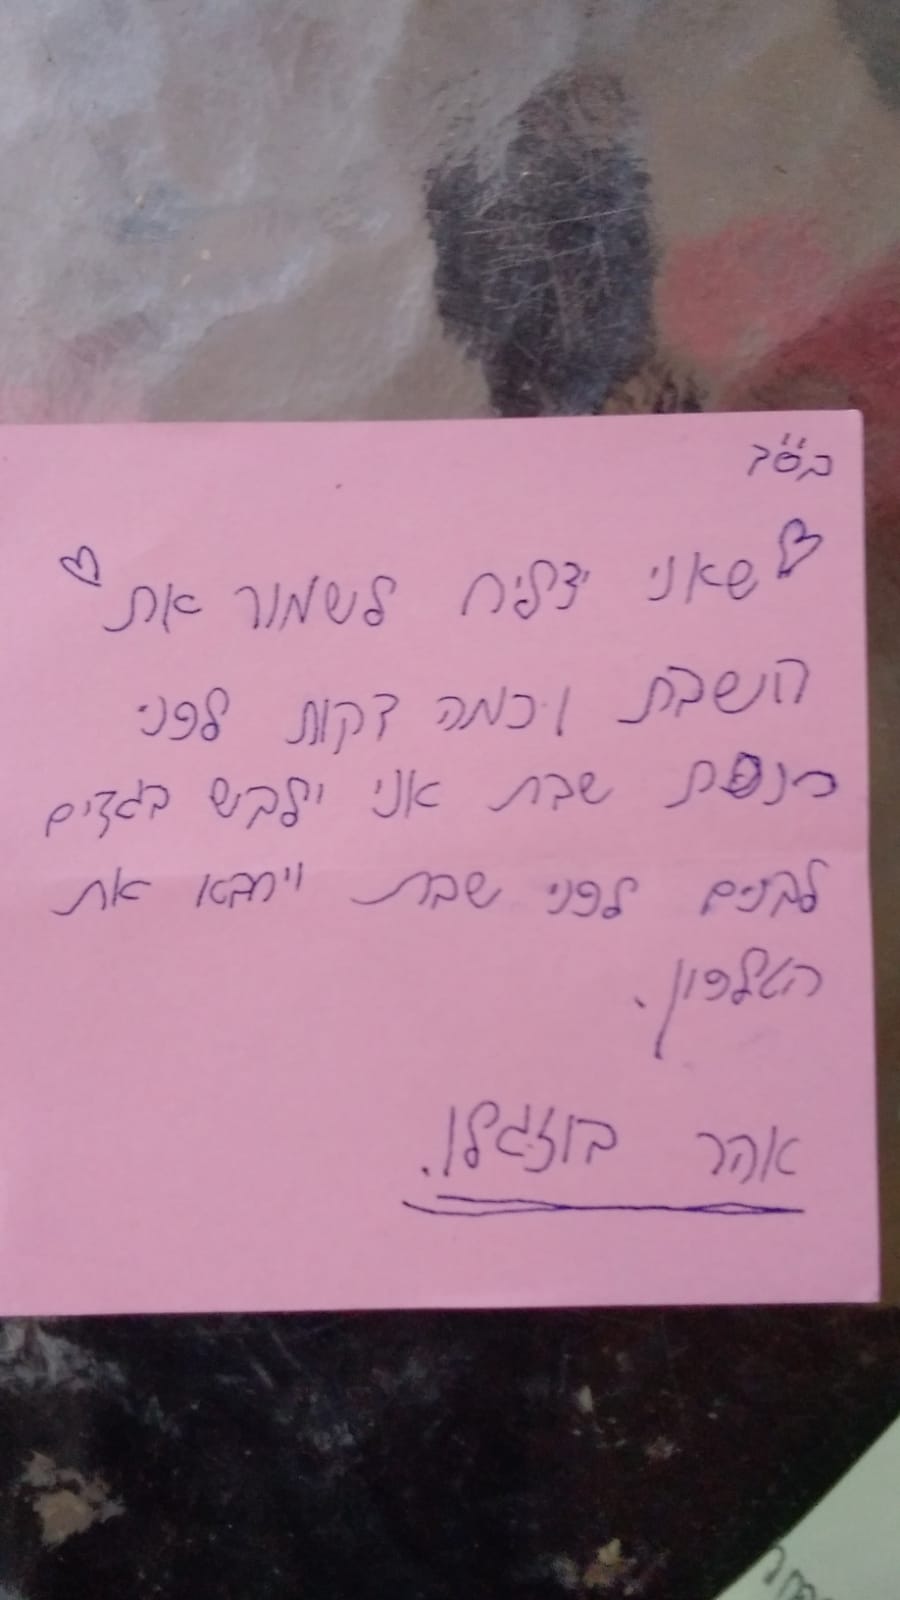 בס"ד
שאני יצליח לשמור את
השבת וכמה דקות לפני
כנסת שבת אני ילבש בגדים
לבנים לפני שבת ויחבא את
הטלפון.
אהר בוזגלו.